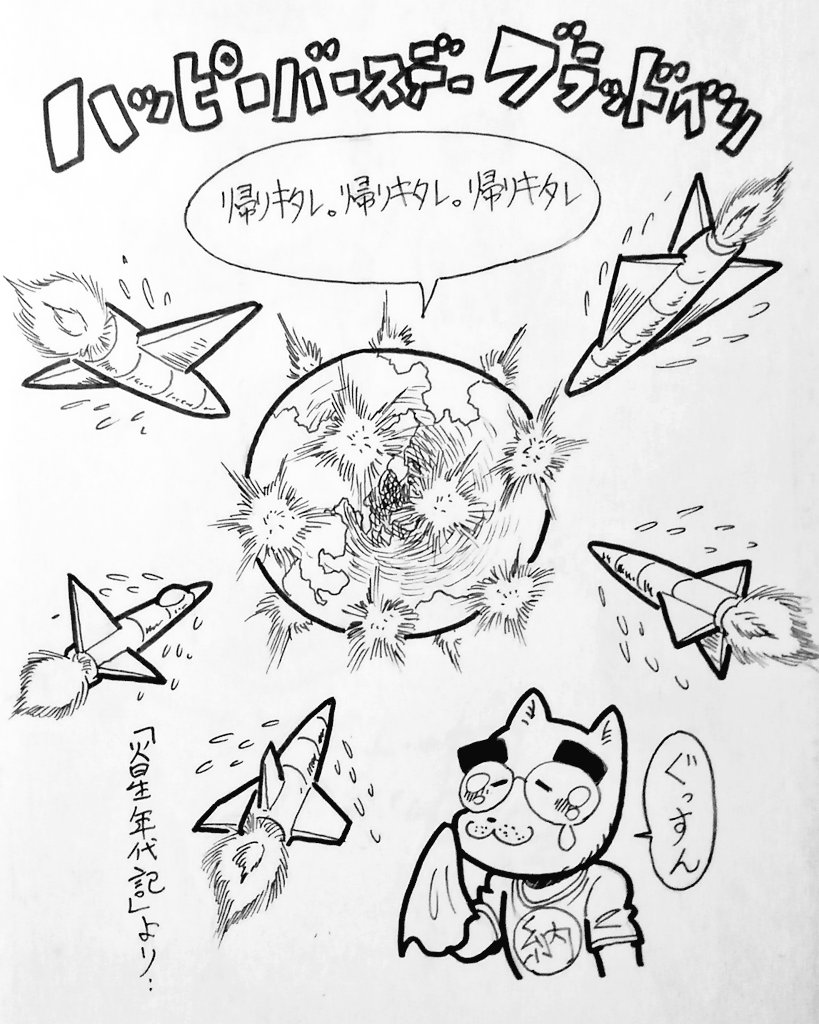 ハッピーバースデーブラッドベリ
帰リキタレ。帰リキタレ。帰リキタレ
「火星年代記」より…
ぐっすん
納